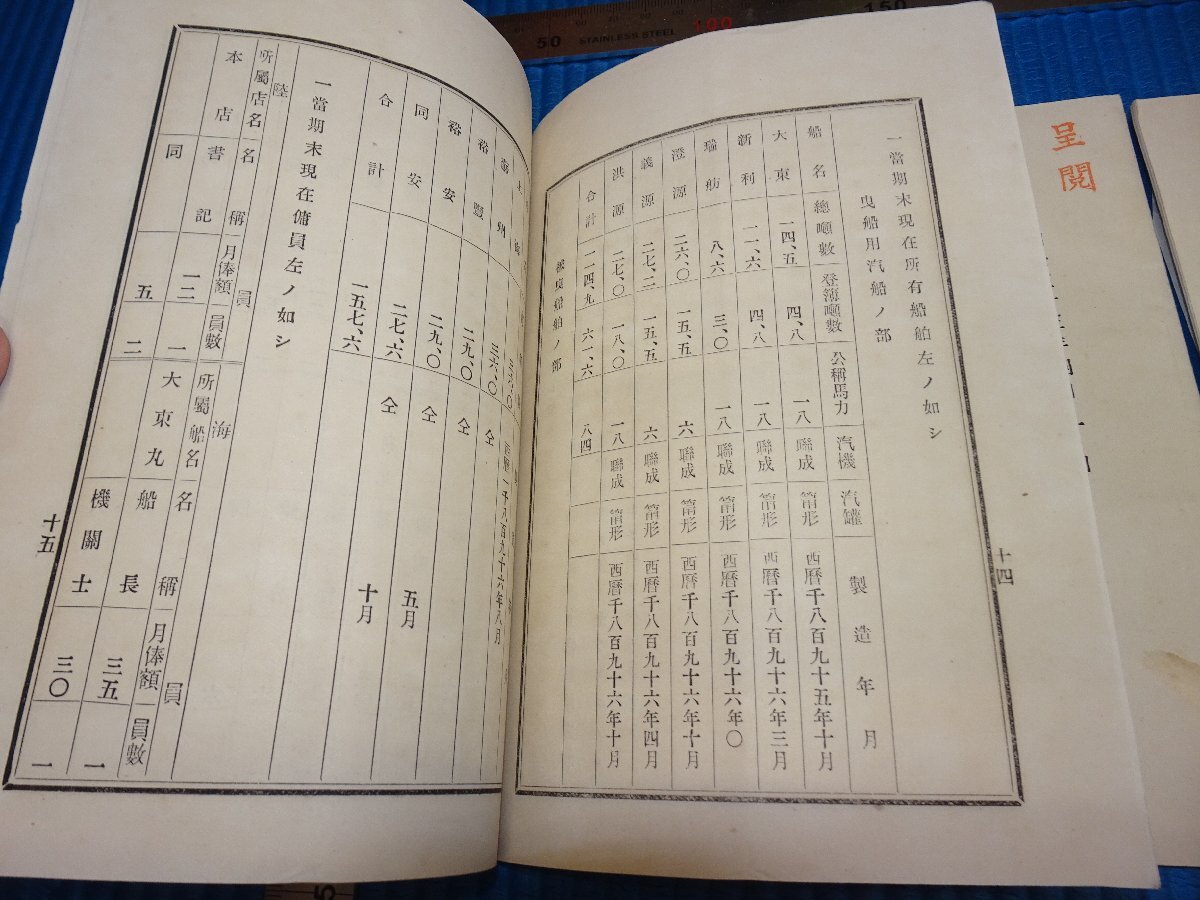 一當期末現在所有船舶左ノ如シ
曳船用汽船ノ部
船名 總噸數 登簿噸數 公稱馬力 汽機 汽罐 製造年月
大東 一四、五 四、八 一八 聯成 筩形 西曆千八百九十五年十月
新利 一一、六 四、八 一八 聯成 筩形 西曆千八百九十六年三月
瑞舫 八、六 三、〇 一八 聯成 筩形 西曆千八百九十六年〇
澄源 二六、〇 一五、五 六 聯成 筩形 西曆千八百九十六年十月
義源 二七、二 一五、五 六 聯成 筩形 西曆千八百九十六年四月
洪源 二七、〇 一八、〇 一八 聯成 筩形 西曆千八百九十六年十月
合計 一一四、九 六一、六 八四
被曳船舶ノ部
十四
三六、〇
蘇州 三六、〇 西曆一千八百九十六年八月
裕豐 二九、〇 仝
裕安 二九、〇 仝
同安 二七、六 仝 五月
合計 一五七、六 十月
一當期末現在傭員左ノ如シ
陸員 海員
所屬店名 名稱 月俸額 員數 所屬船名 名稱 月俸額 員數
本店 書記 一二 一 大東丸 船長 三五 一
同 五 二 機關士 三〇 一
十五
呈閱
50
STAINLESS STEEL
100
150